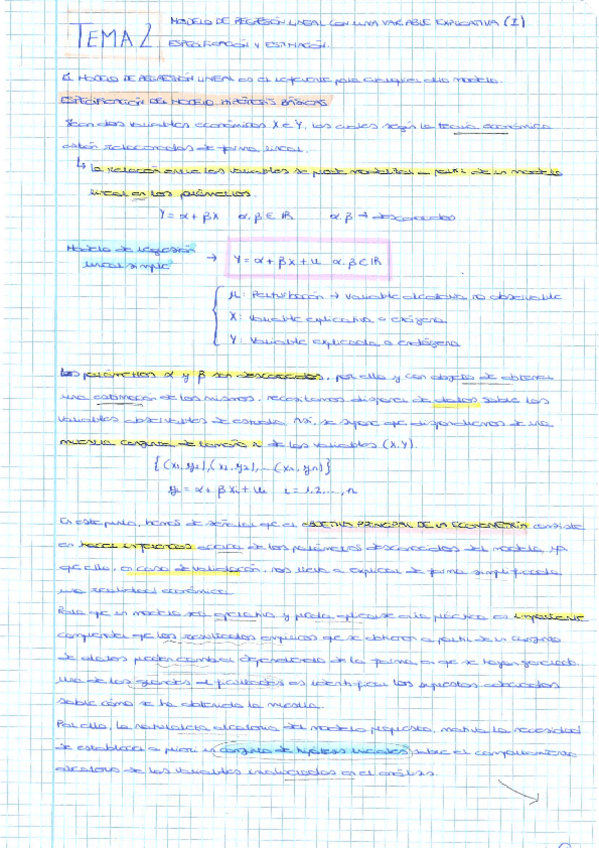 TEMA 2
MODELO DE REGRESIÓN LINEAL CON UNA VARIABLE EXPLICATIVA (I)
ESPECIFICACIÓN Y ESTIMACIÓN.
El MODELO DE REGRESIÓN LINEAL es el referente para cualquier otro modelo.
ESPECIFICACIÓN DEL MODELO. HIPÓTESIS BÁSICAS
Sean dos variables económicas X e Y, las cuales según la teoría económica
están relacionadas de forma lineal.
↳ La relación entre las variables se puede modelizar a partir de un modelo
lineal en los parámetros.
Y = α + βX α, β ∈ ℝ α, β → desconocidos
Modelo de regresión
lineal simple → Y = α + βX + u α, β ∈ ℝ
μ: Perturbación → variable aleatoria no observable
X: Variable explicativa o exógena
Y: Variable explicada o endógena
Los parámetros α y β son desconocidos, por ello y con objeto de obtener
una estimación de los mismos, necesitamos disponer de datos sobre las
variables observables de estudio. Así, se supone que disponemos de una
muestra conjunta de tamaño n de las variables (X,Y).
{(x₁,y₁),(x₂,y₂),...(xn,yn)}
yi = α + βXi + ui i = 1,2,...,n
En este punto, hemos de señalar que el OBJETIVO PRINCIPAL DE LA ECONOMETRÍA consiste
en hacer inferencias acerca de los parámetros desconocidos del modelo, ya
que ello, en caso de validación, nos lleva a explicar de forma simplificada
una realidad económica.
Para que un modelo sea operativo y pueda aplicarse a la práctica es importante
comprender que los resultados empíricos que se obtienen a partir de un conjunto
de datos pueden cambiar dependiendo de la forma en que se hayan generado.
Una de las es identificar los supuestos adecuados
sobre cómo se ha obtenido la muestra.
Por ello, la naturaleza aleatoria del modelo propuesto, motiva la necesidad
de establecer a priori un conjunto de hipótesis iniciales sobre el comportamiento
aleatorio de las variables involucradas en el análisis.